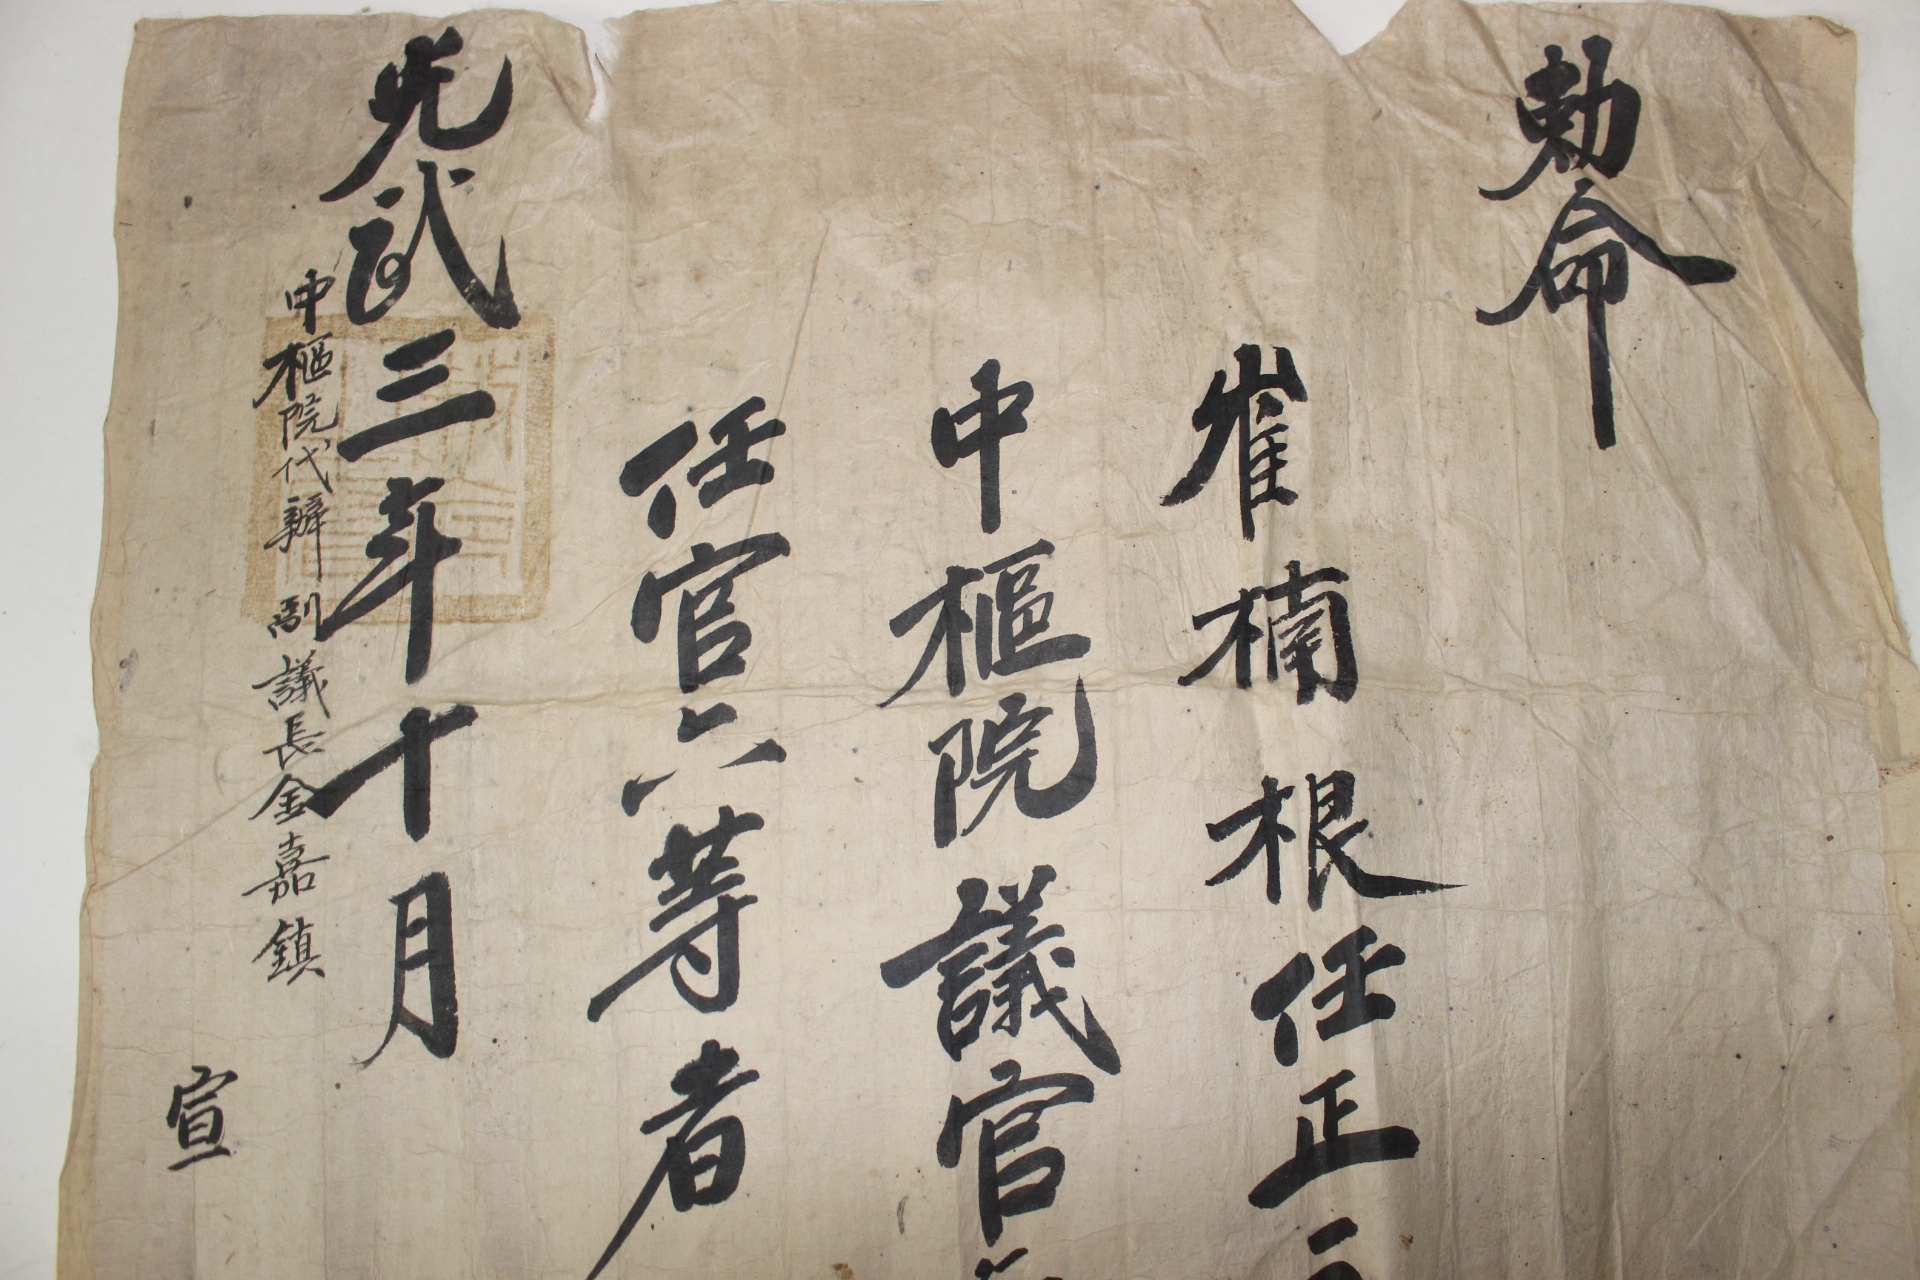 勅命
崔楠根任正
中樞院議官
任官六等者
光武三年十月
中樞院代辦副議長金嘉鎭
宣